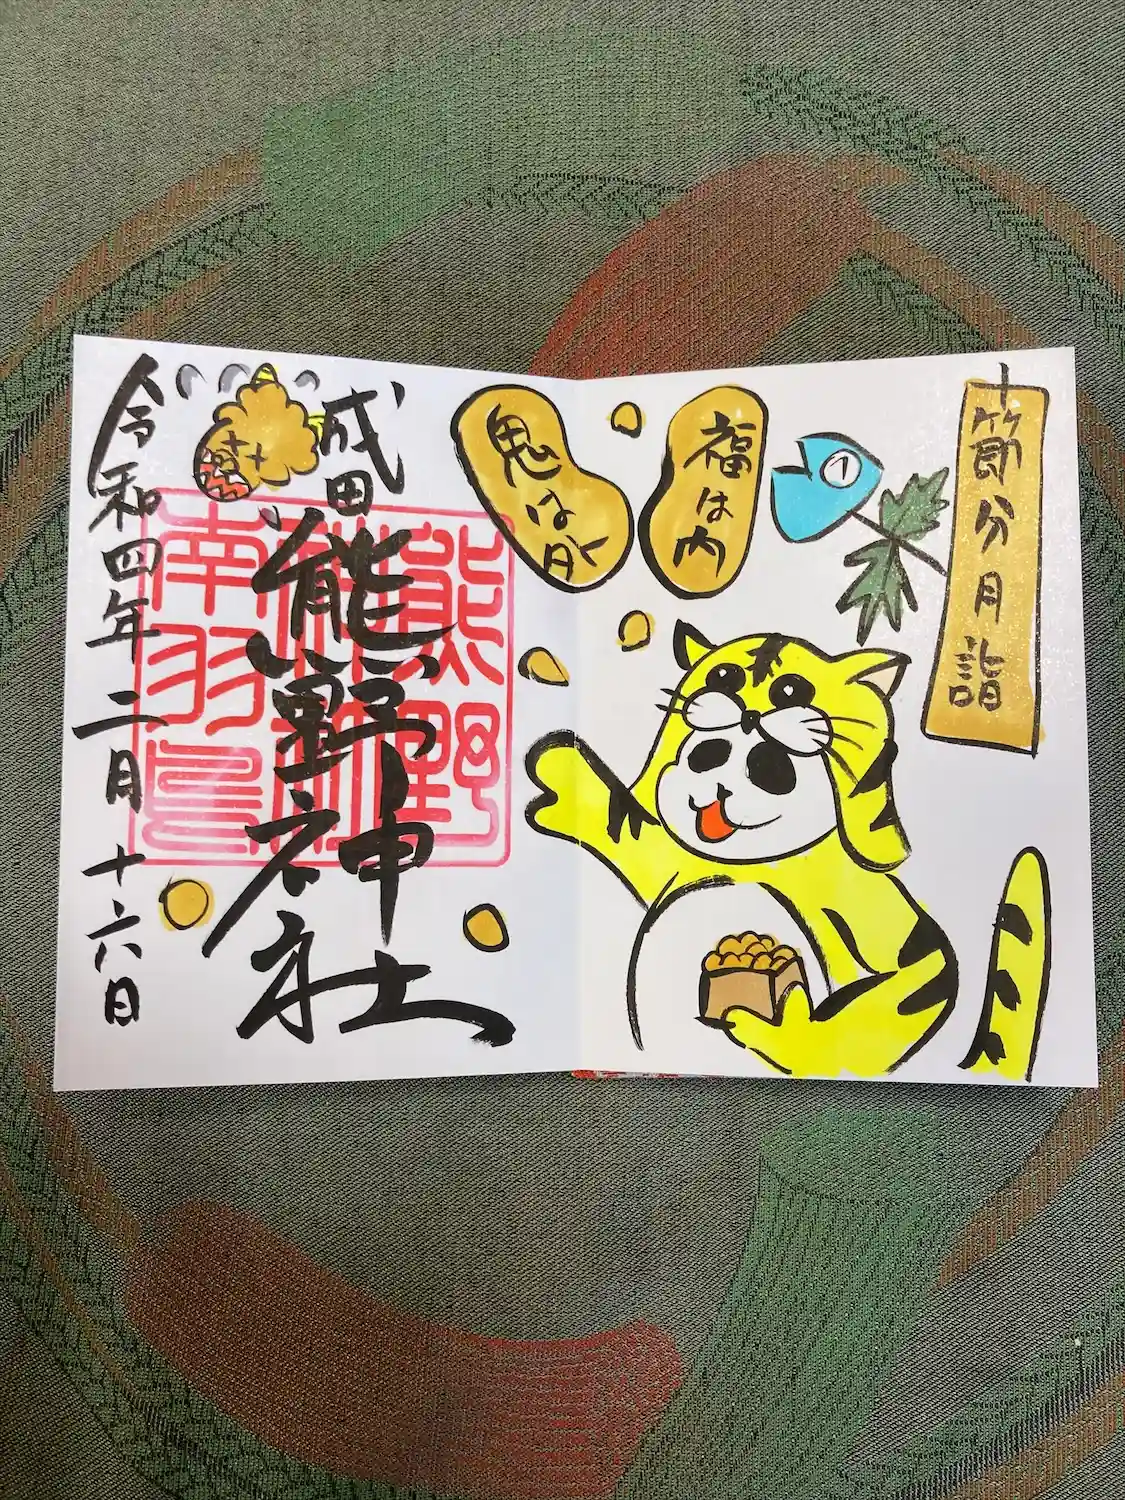 節分月詣
福は内
鬼は外
成田
熊野神社
熊野
神社
南羽鳥
令和四年二月十六日